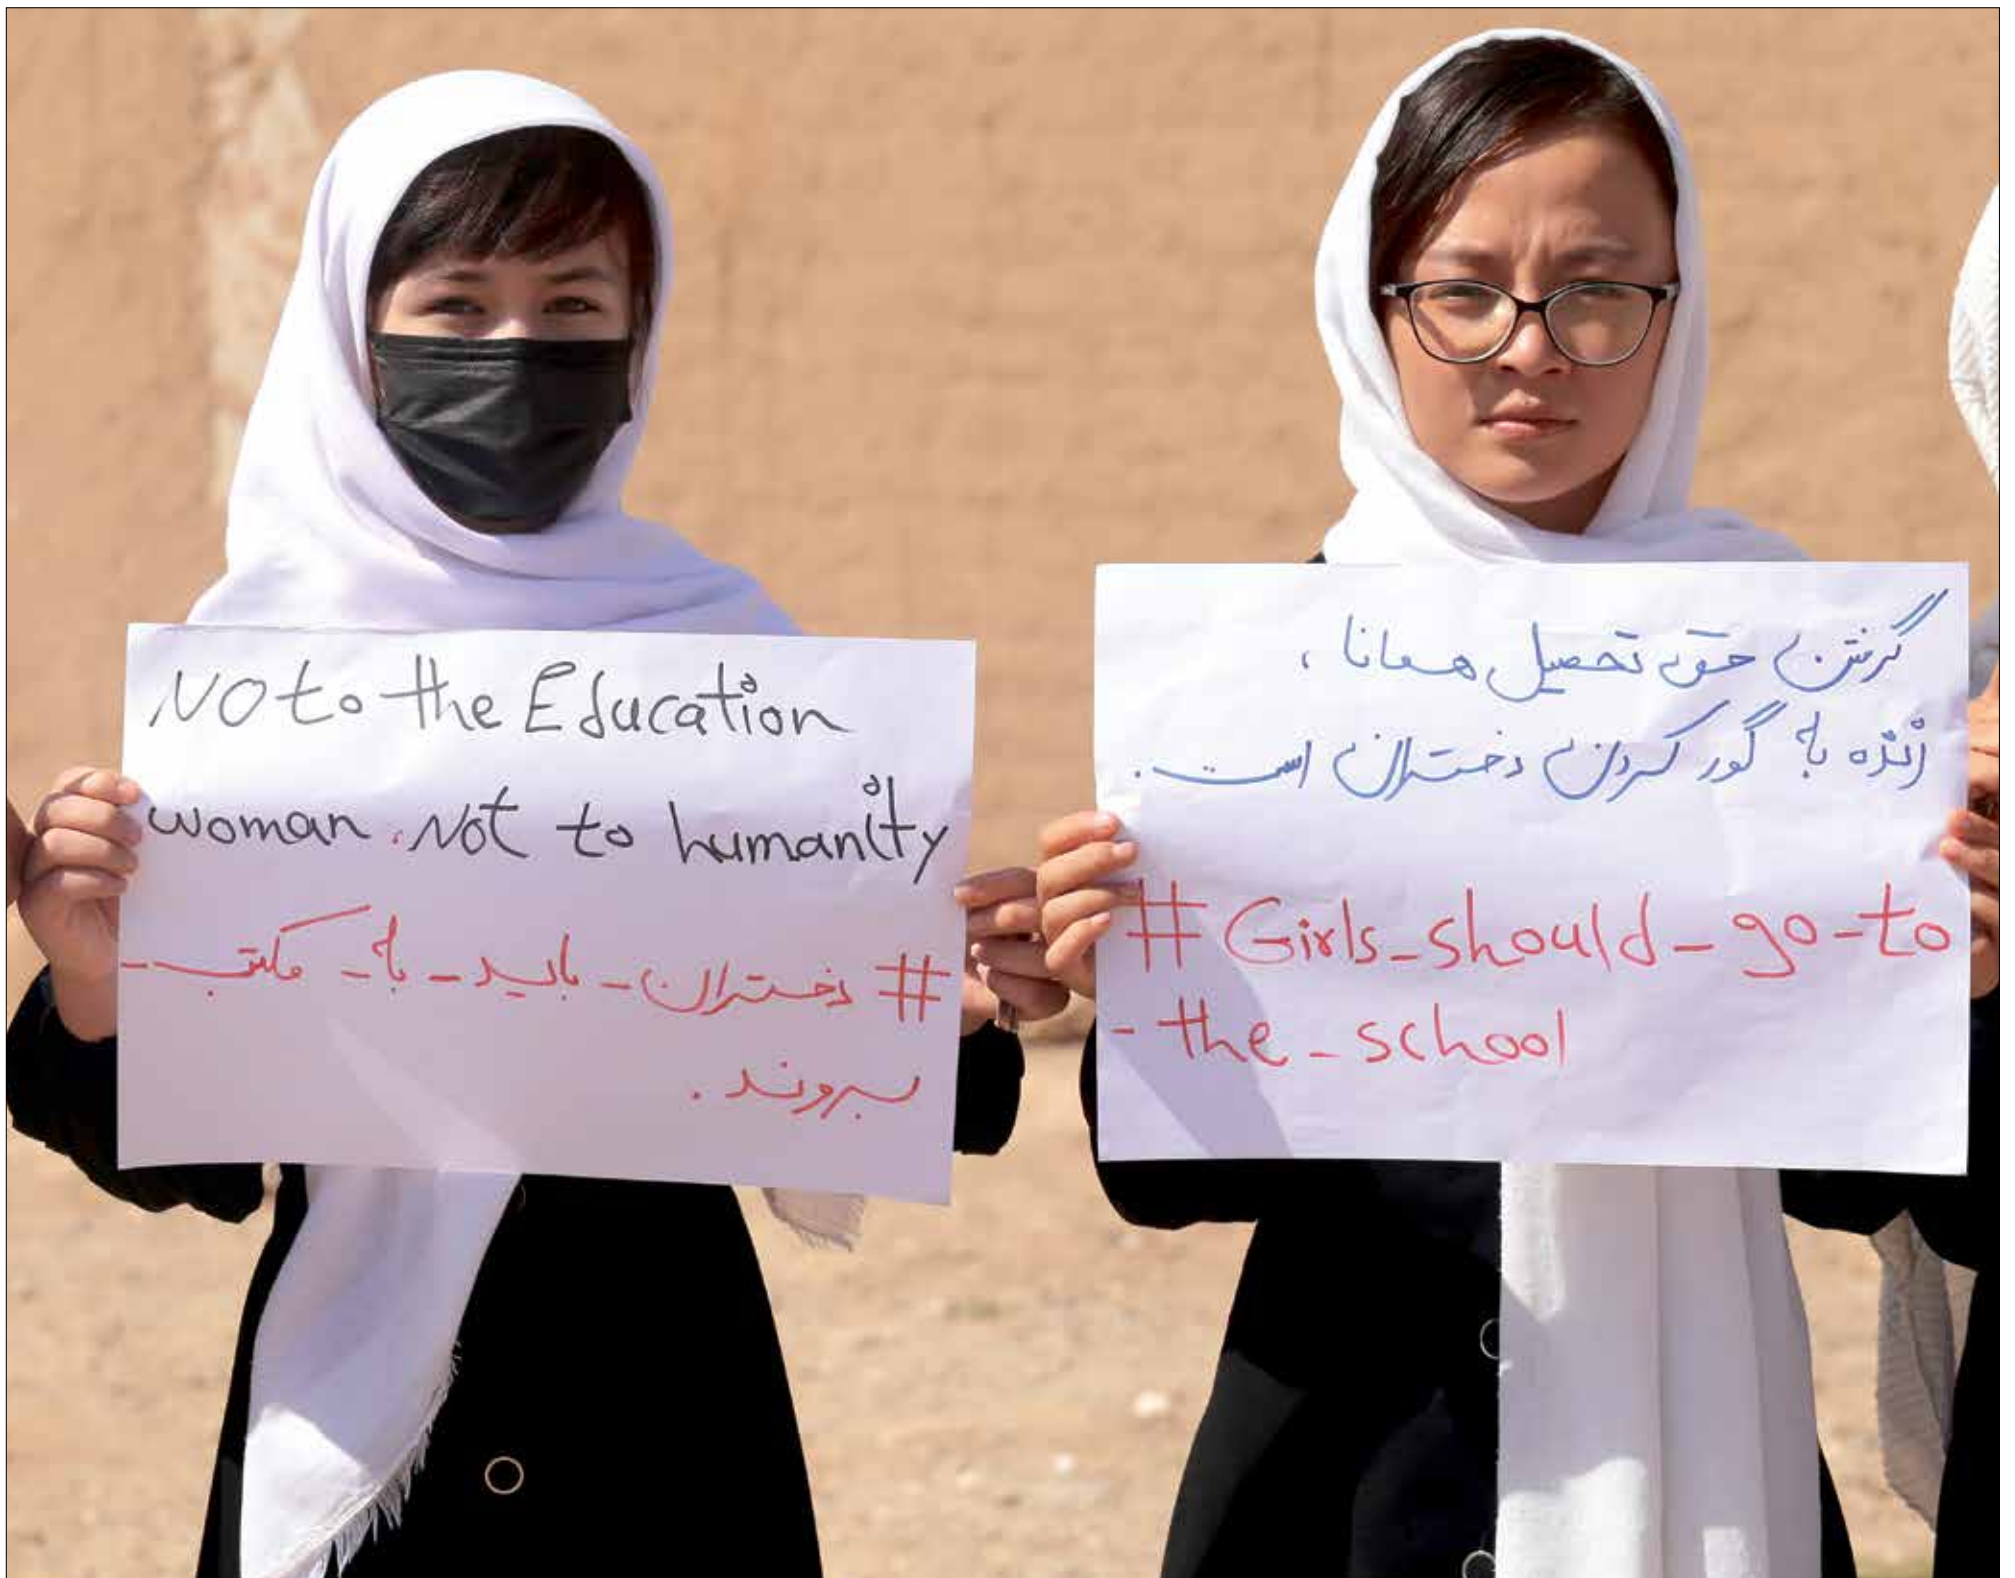 NO to the Education
woman. Not to humanity
# دختران - باید - به - مکتب -
بروند .
گرفتن حق تحصیل همانا ،
زنده به گور کردن دختران است.
# Girls_should_go_to
- the_school